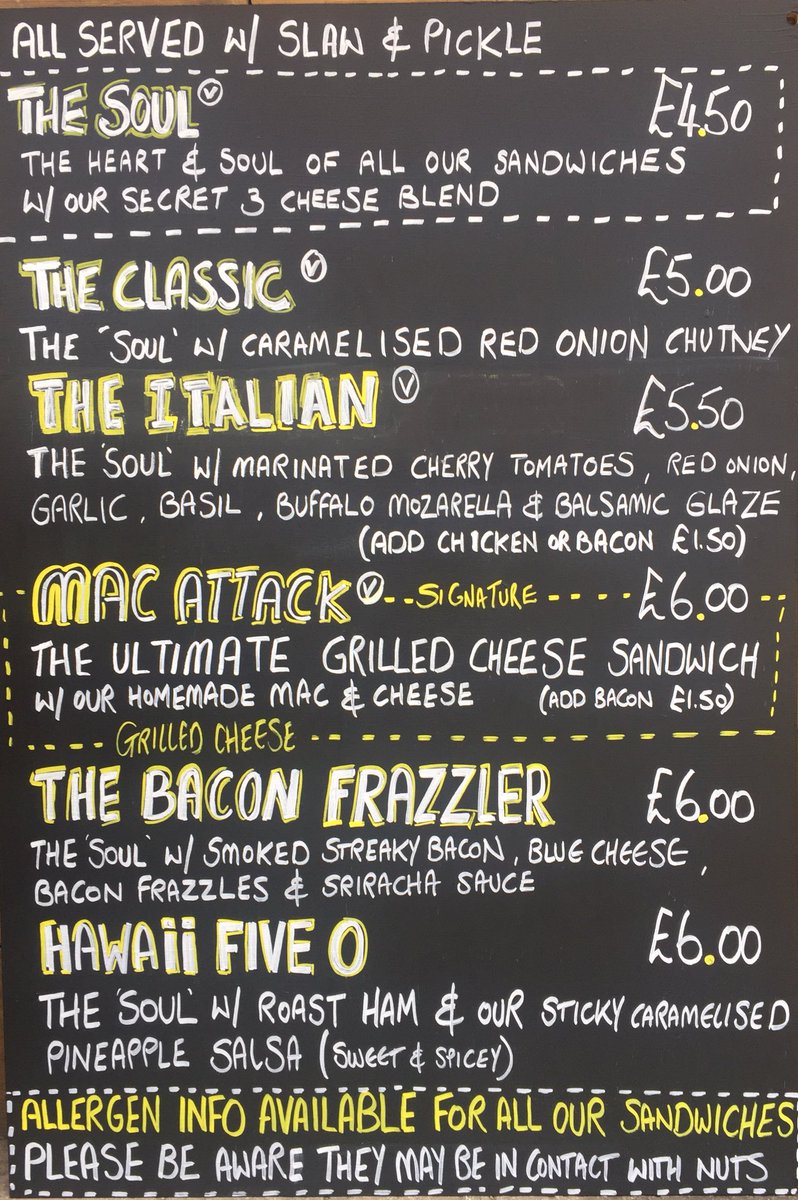 ALL SERVED W/ SLAW & PICKLE
THE SOUL Ⓥ £4.50
THE HEART & SOUL OF ALL OUR SANDWICHES
W/ OUR SECRET 3 CHEESE BLEND
THE CLASSIC Ⓥ £5.00
THE "SOUL' W/ CARAMELISED RED ONION CHUTNEY
THE ITALIAN Ⓥ £5.50
THE 'SOUL' W/ MARINATED CHERRY TOMATOES, RED ONION,
GARLIC, BASIL, BUFFALO MOZARELLA & BALSAMIC GLAZE
(ADD CHICKEN OR BACON £1.50)
MAC ATTACK Ⓥ SIGNATURE £6.00
THE ULTIMATE GRILLED CHEESE SANDWICH
W/ OUR HOMEMADE MAC & CHEESE (ADD BACON £1.50)
GRILLED CHEESE
THE BACON FRAZZLER £6.00
THE 'SOUL' W/ SMOKED STREAKY BACON, BLUE CHEESE,
BACON FRAZZLES & SRIRACHA SAUCE
HAWAii FIVE O £6.00
THE 'SOUL' W/ ROAST HAM & OUR STICKY CARAMELISED
PINEAPPLE SALSA (SWEET & SPICEY)
ALLERGEN INFO AVAILABLE FOR ALL OUR SANDWICHES
PLEASE BE AWARE THEY MAY BE IN CONTACT WITH NUTS